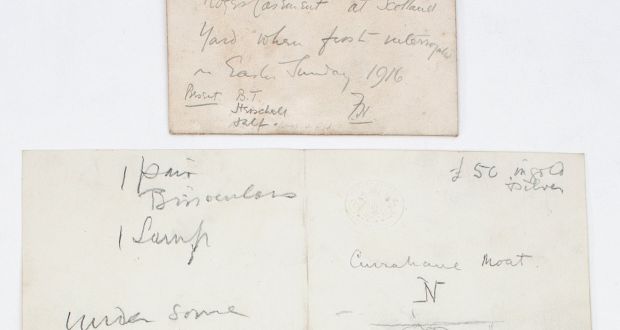 Roger Casement at Scotland
Yard when first interrogated
on Easter Sunday 1916
Present B.T.
Herschell
Self.
1 pair
Binoculars
1 Lamp
under some
£50 in gold
silver
Currahane Moat.
N